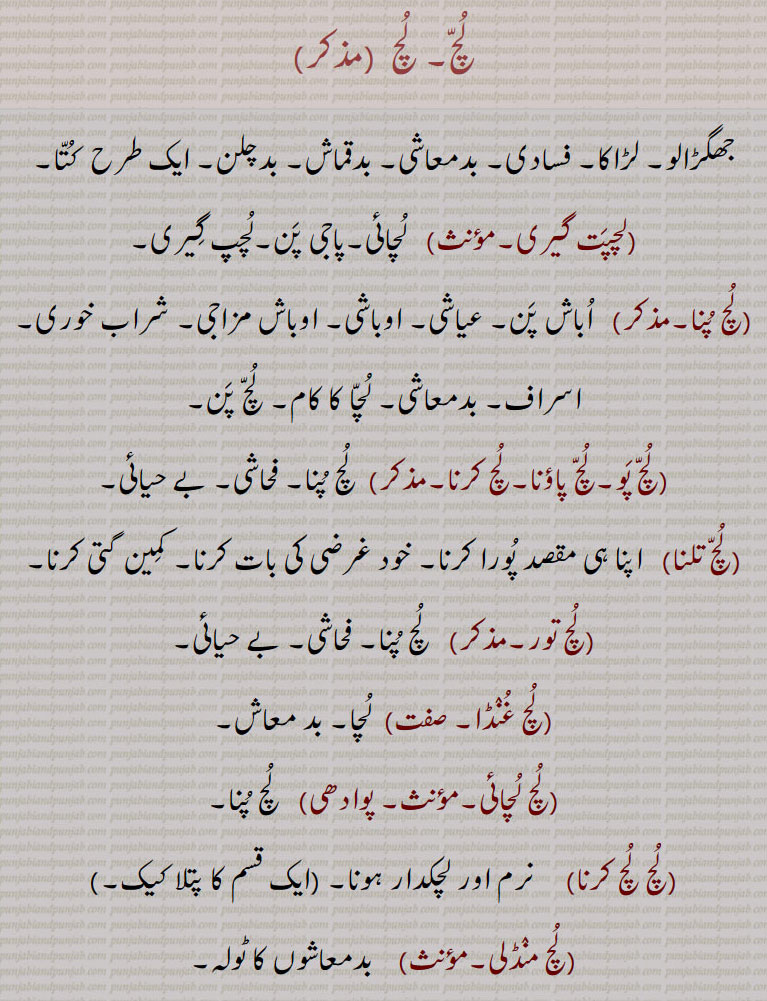 لُچّ۔ لُچ (مذکر)
جھگڑالو۔ لڑاکا۔ فسادی۔ بدمعاشی۔ بدقماش۔ بدچلن۔ ایک طرح کُتّا۔
(لچپَت گیری۔مؤنث) لُچائی۔پاجی پَن۔لُچپ گِیری۔
(لُچ پُنا۔مذکر) اُباش پَن۔ عیاشی۔ اوباشی۔ اوباش مزاجی۔ شراب خوری۔
اسراف۔ بدمعاشی۔ لُچّا کا کام۔ لُچّ پَن۔
(لُچّ پَو۔لُچّ پاؤنا۔لُچ کرنا۔مذکر) لُچ پُنا۔ فحاشی۔ بے حیائی۔
(لُچّ تلنا) اپنا ہی مقصد پُورا کرنا۔ خود غرضی کی بات کرنا۔ کمِین گتی کرنا۔
(لُچ تور۔مذکر) لُچ پُنا۔ فحاشی۔ بے حیائی۔
(لُچ غُنْڈا۔ صفت) لُچا۔ بد معاش۔
(لُچ لُچائی۔مؤنث۔ پوادھی) لُچ پُنا۔
(لُچ لُچ کرنا) نرم اور لچکدار ہونا۔ (ایک قسم کا پتلا کیک۔)
(لُچ منْڈلی۔مؤنث) بدمعاشوں کا ٹولہ۔